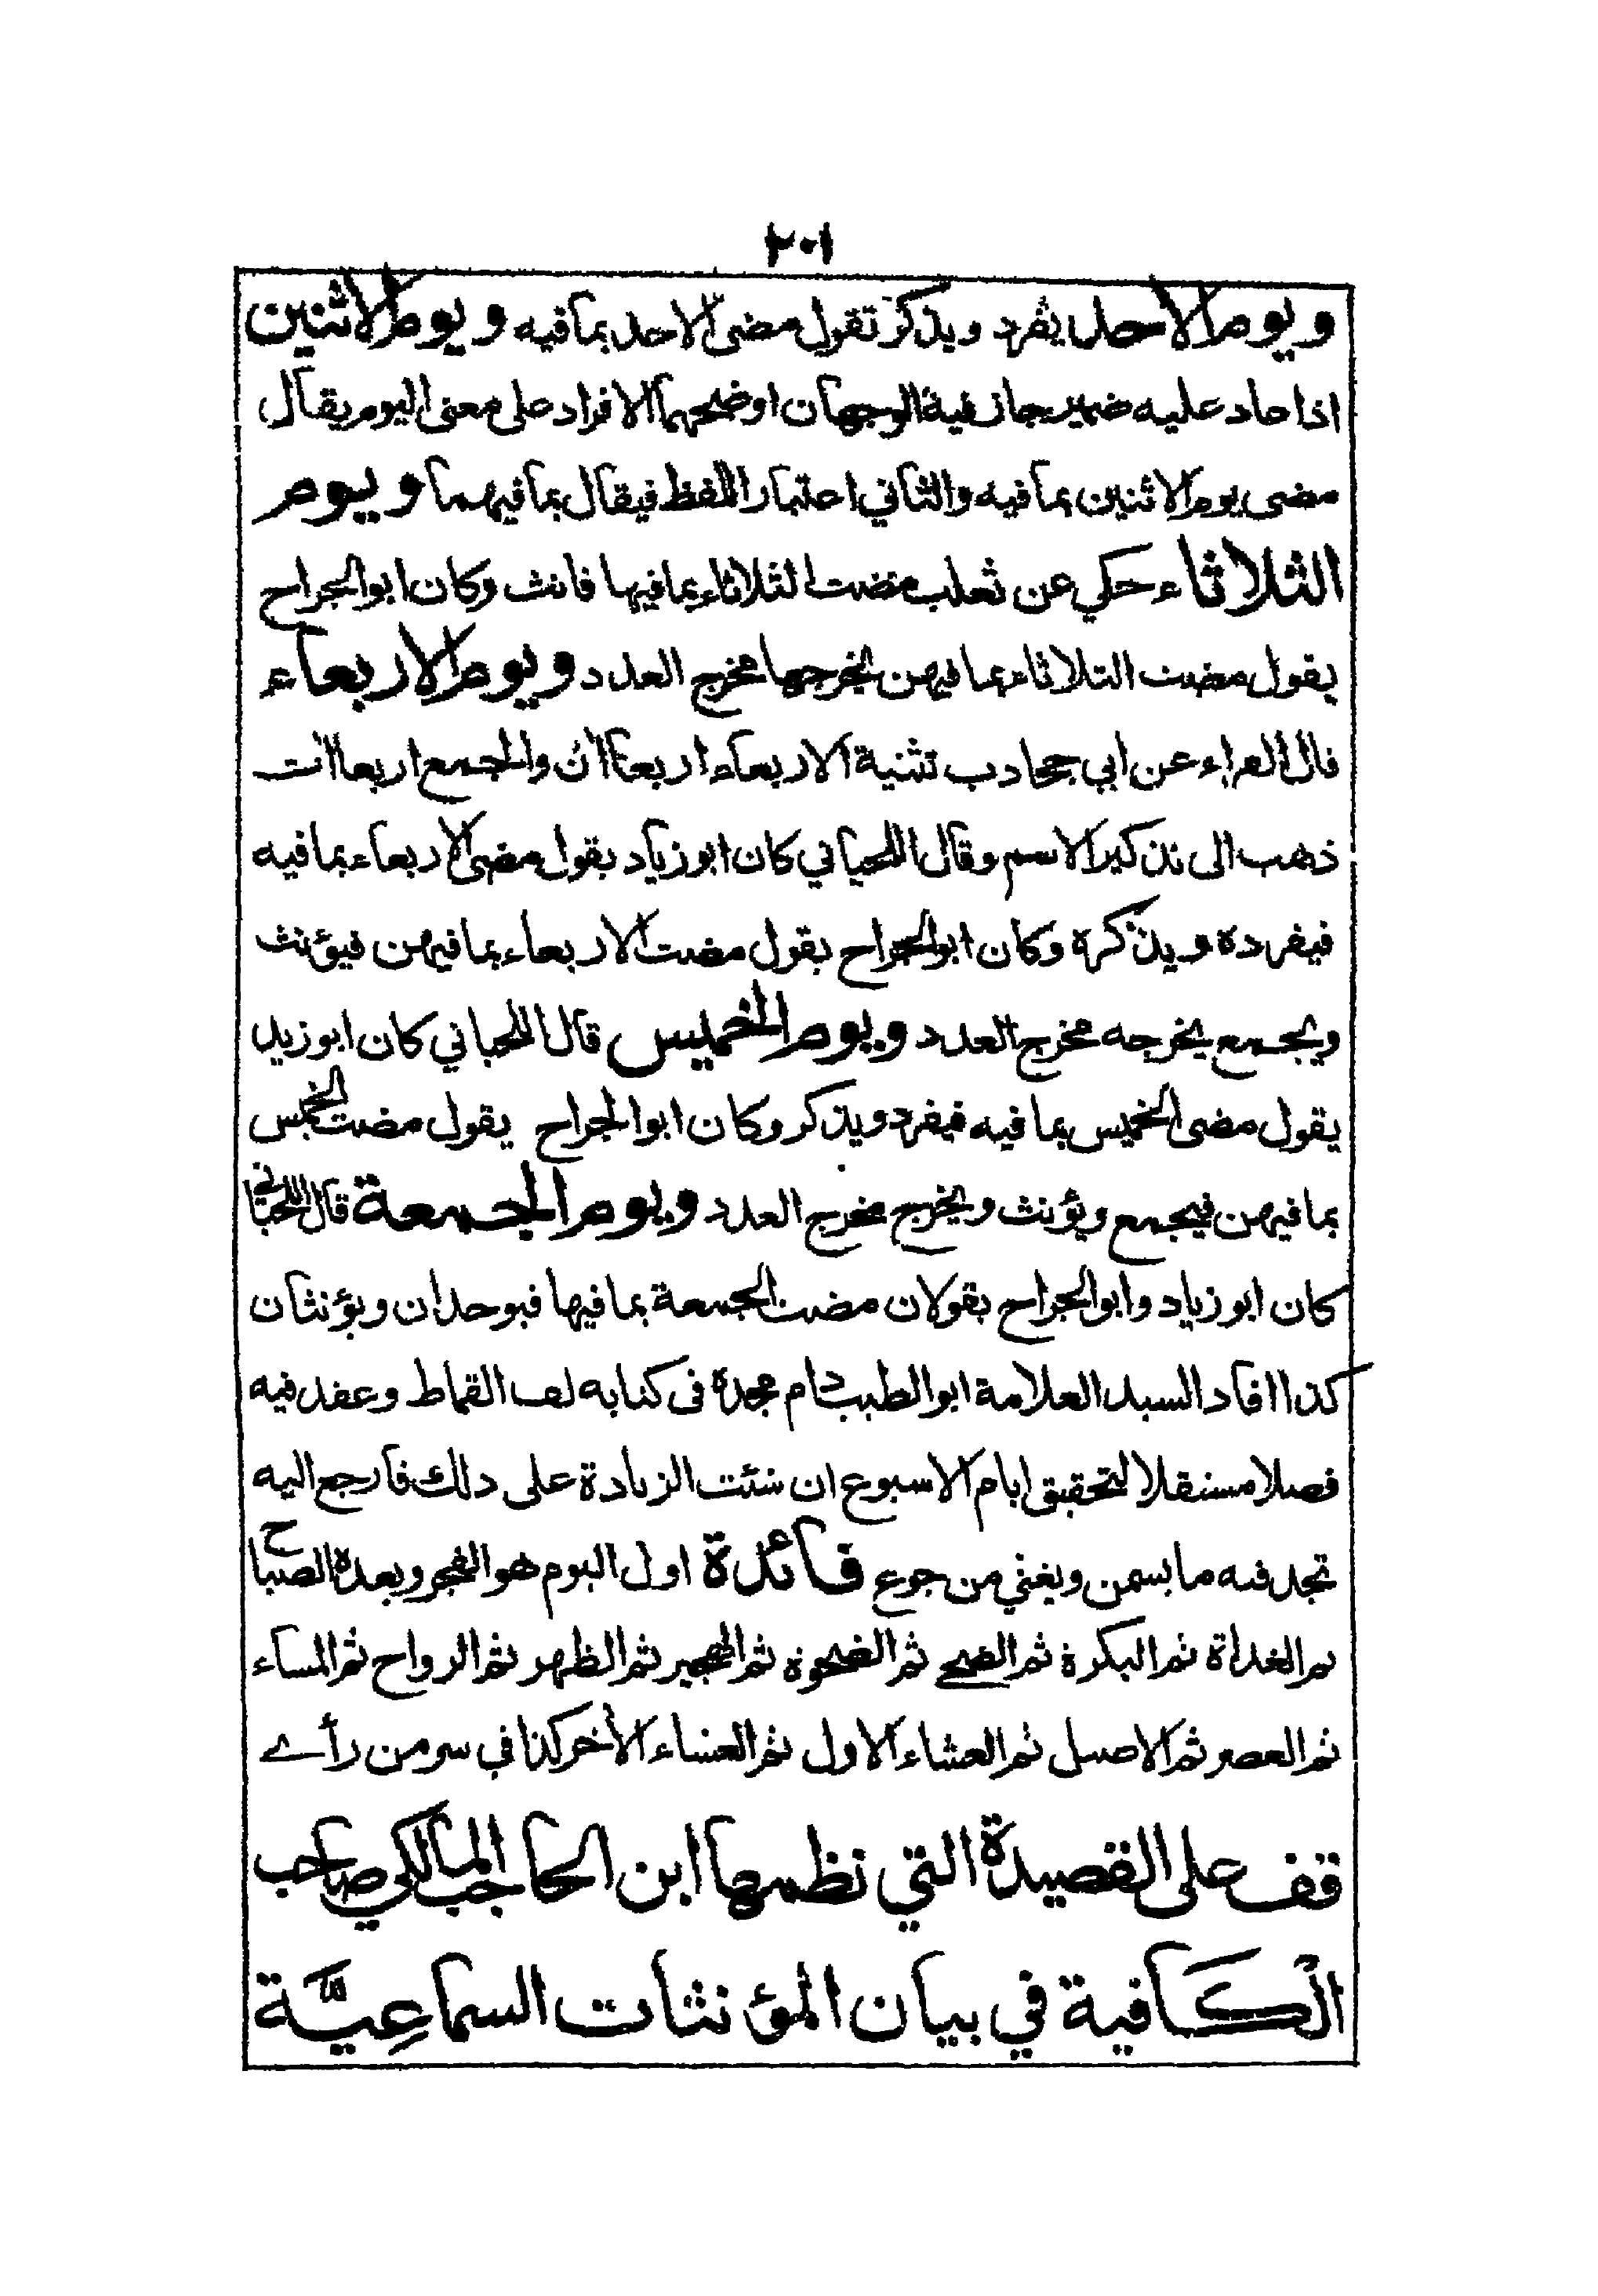 ٢٠١
ويوم الاحد يفرد ويذكر تقول مضى الاحد بما فيه ويوم الاثنين
اذا عاد عليه ضمير جاز فيه الوجهان اوضحهما الافراد على معنى اليوم يقال
مضى يوم الاثنين بما فيه والثاني اعتبار اللفظ فيقال بما فيهما ويوم
الثلاثاء حكي عن ثعلب مضت الثلاثاء بما فيها فانث وكان ابو الجراح
يقول مضت الثلاثاء بما فيهن يخرجها مخرج العدد ويوم الاربعاء
قال الفراء عن ابي جخادب تثنية الاربعاء اربعاأن والجمع اربعاأت
ذهب الى تذكير الاسم وقال اللحياني كان ابو زياد يقول مضى الاربعاء بما فيه
فيفرده ويذكره وكان ابو الجراح يقول مضت الاربعاء بما فيهن فيؤنث
ويجمع يخرجه مخرج العدد ويوم الخميس قال اللحياني كان ابو زيد
يقول مضى الخميس بما فيه فيفرد ويذكر وكان ابو الجراح يقول مضت الخميس
بما فيهن فيجمع ويؤنث ويخرج مخرج العدد ويوم الجمعة قال اللحياني
كان ابو زياد وابو الجراح يقولان مضت الجمعة بما فيها فيوحدان ويؤنثان
كذا افاد السيد العلامة ابو الطيب دام مجده في كتابه لف القماط وعقد فيه
فصلا مستقلا لتحقيق ايام الاسبوع ان شئت الزيادة على ذلك فارجع اليه
تجد فيه ما يسمن ويغني من جوع فائدة اول اليوم هو الفجر وبعده الصباح
ثم الغداة ثم البكرة ثم الضحى ثم الضحوة ثم الهجير ثم الظهر ثم الرواح ثم المساء
ثم العصر ثم الاصيل ثم العشاء الاول ثم العشاء الأخر كذا في سر من رأے
قف على القصيدة التي نظمها ابن الحاجب المالكي صاحب
الكافية في بيان المؤنثات السماعيَّة